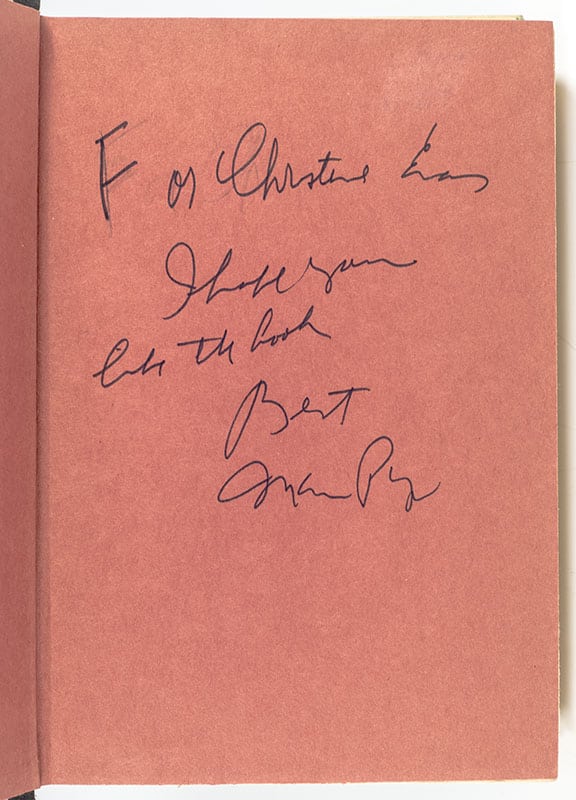 For Christine Evans
I hope you
like the book
Best